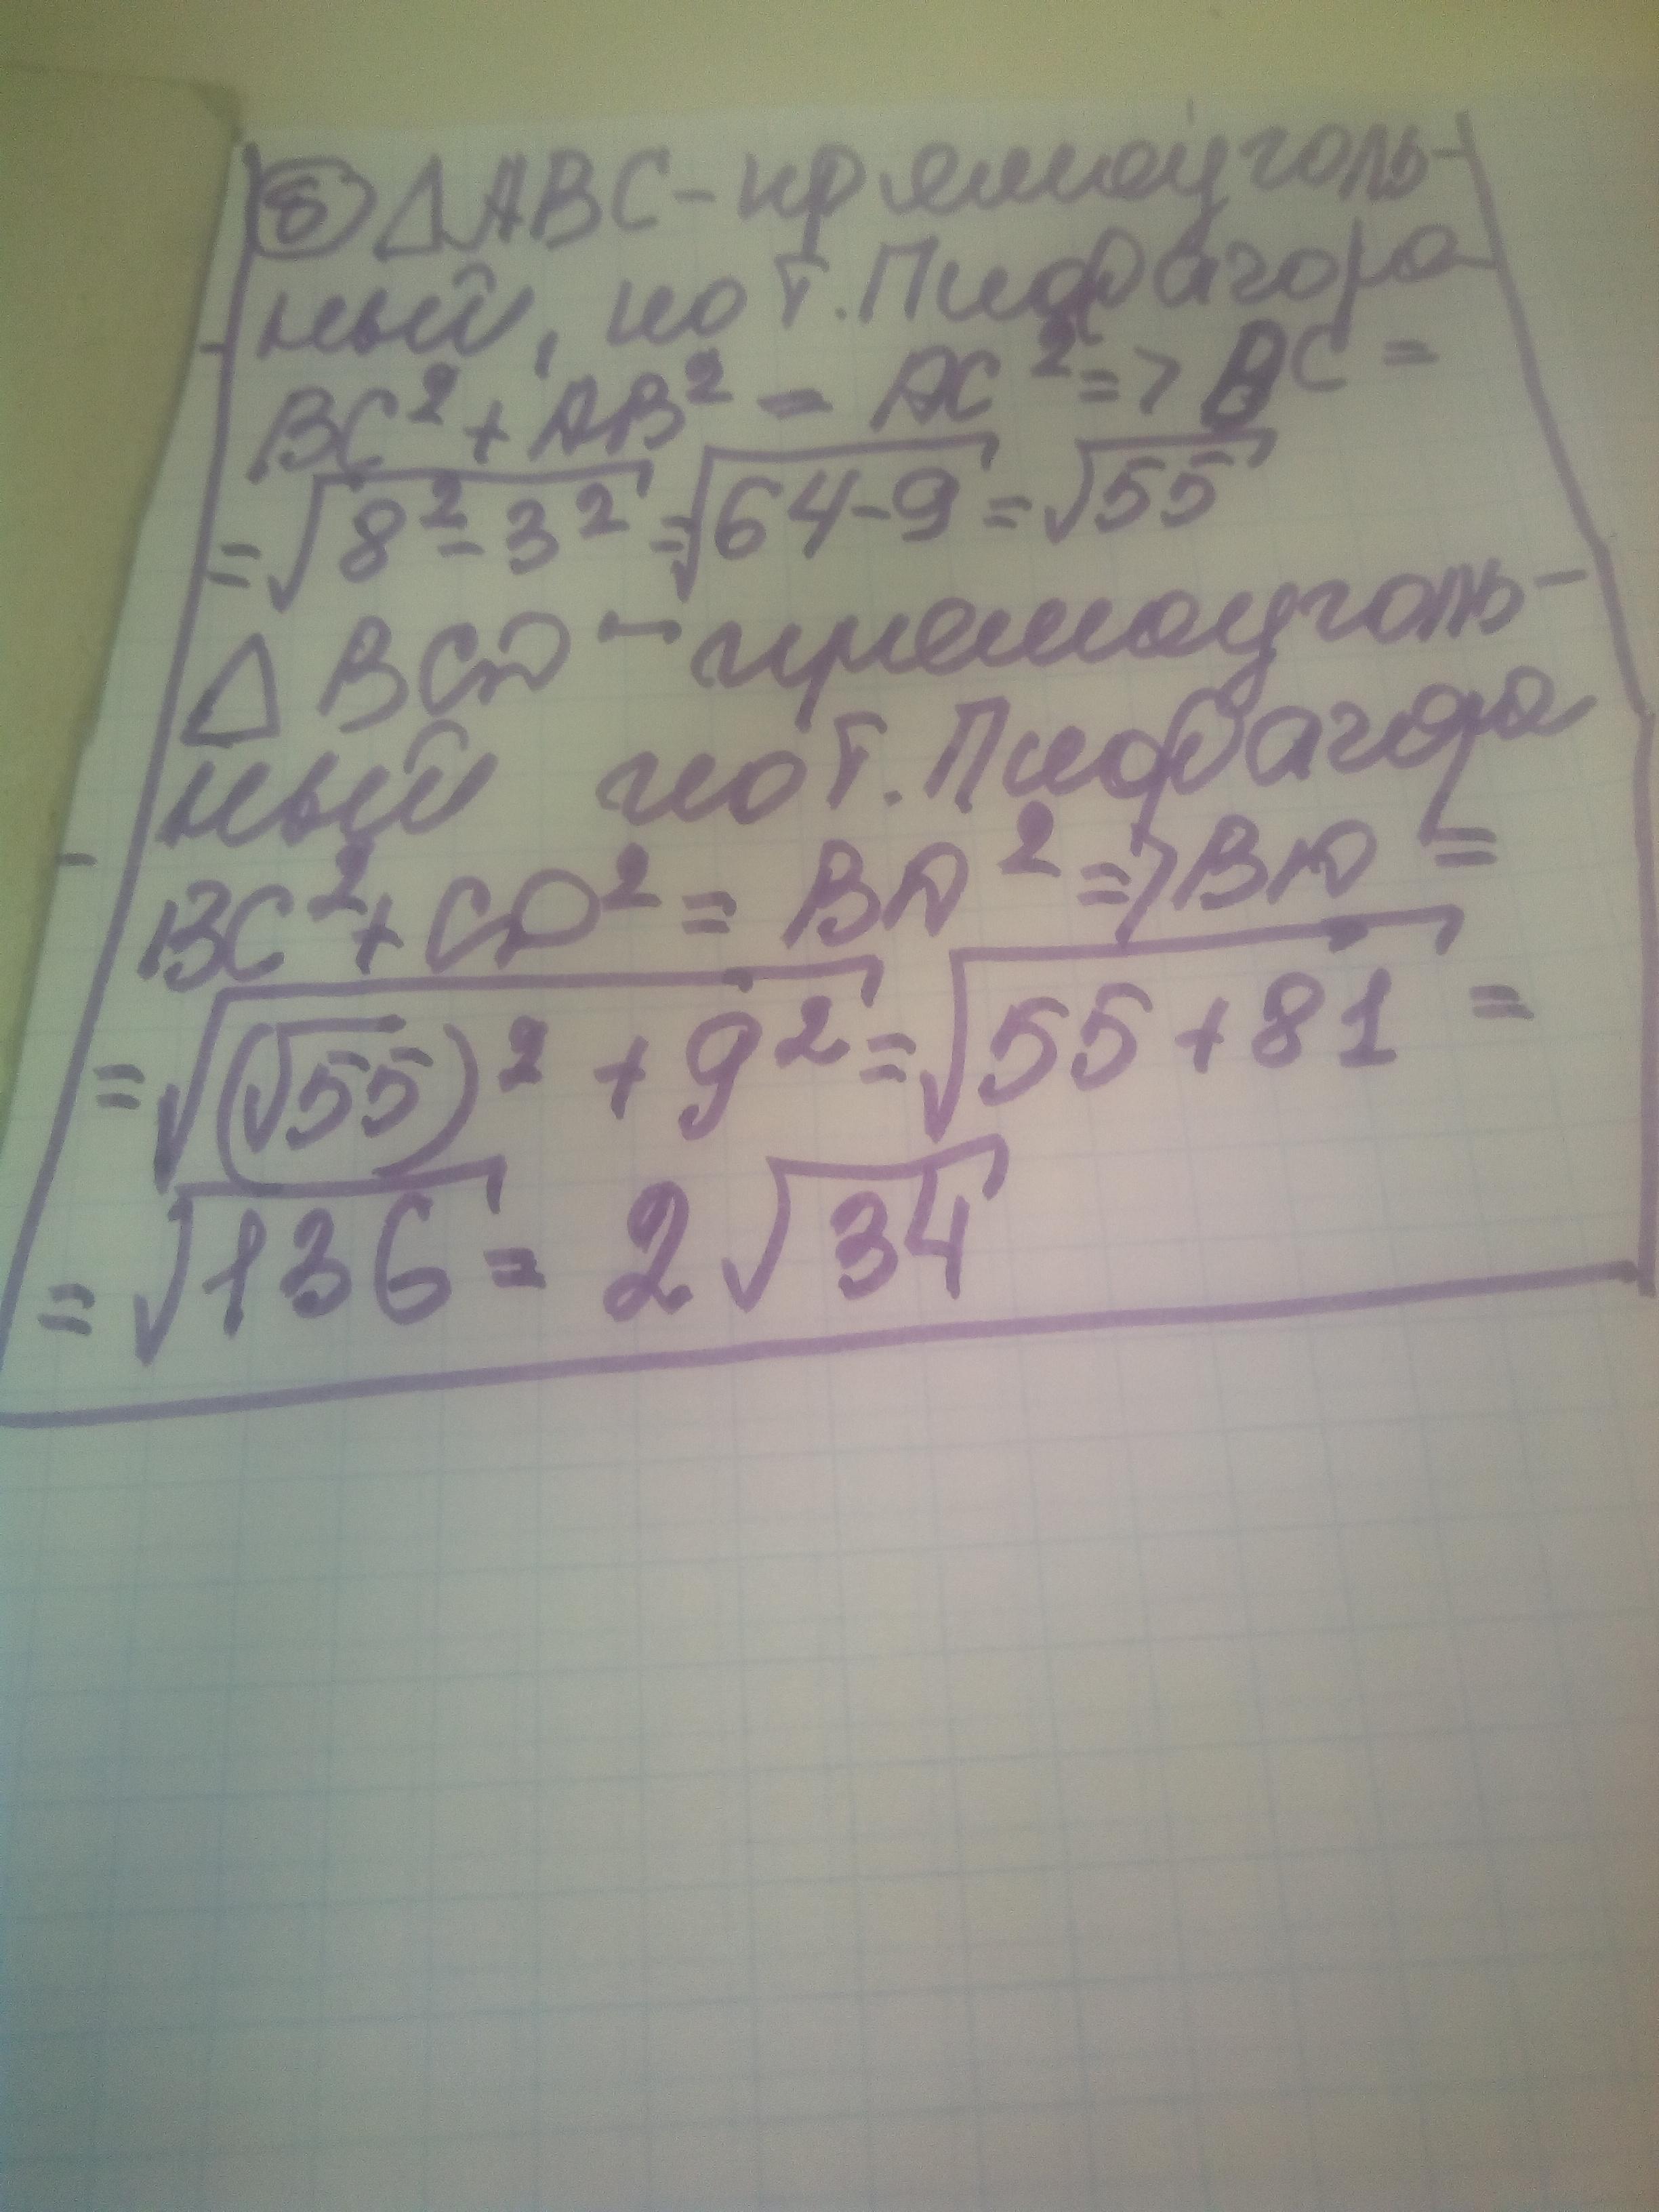 б) △ABC - прямоуголь-
ный, по т. Пифагора
BC² + AB² = AC² => BC =
= √(8² - 3²) = √(64 - 9) = √55
△BCD - прямоуголь-
ный по т. Пифагора
BC² + CD² = BD² => BD =
= √((√55)² + 9²) = √(55 + 81) =
= √136 = 2√34